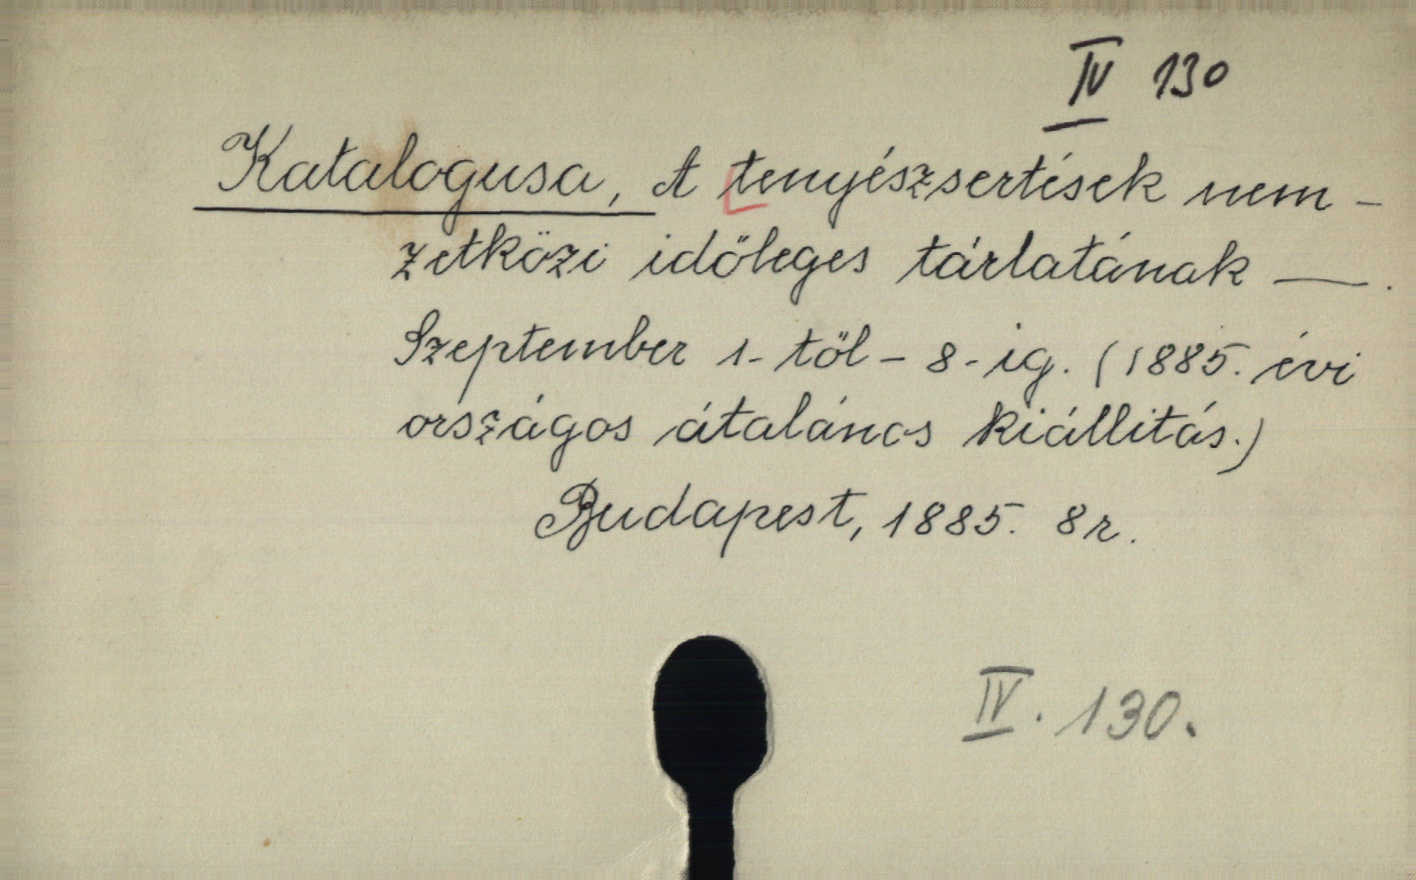 IV 130
Katalogusa, A tenyészsertések nem-
zetközi időleges tárlatának —.
Szeptember 1-től - 8-ig. (1885. évi
országos átalános kiállitás.)
Budapest, 1885. 8r.
IV. 130.